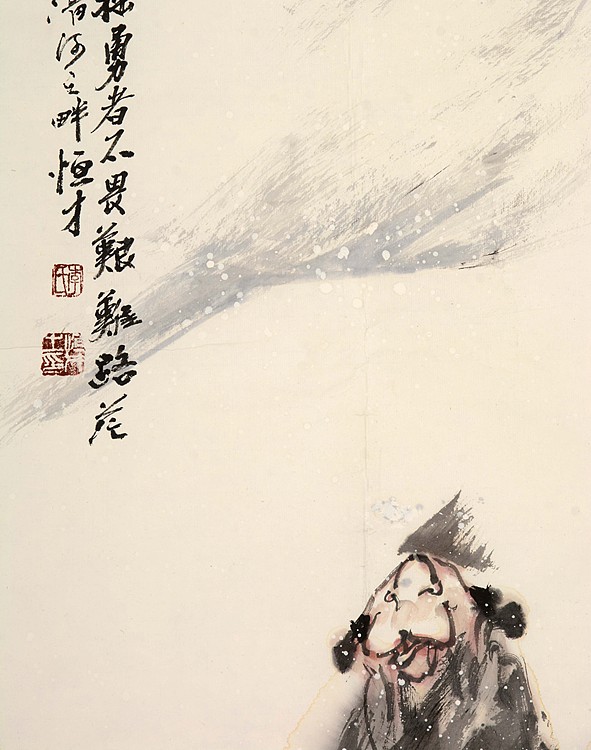 勇者不畏艱難路茫
清河之畔恒才
李氏